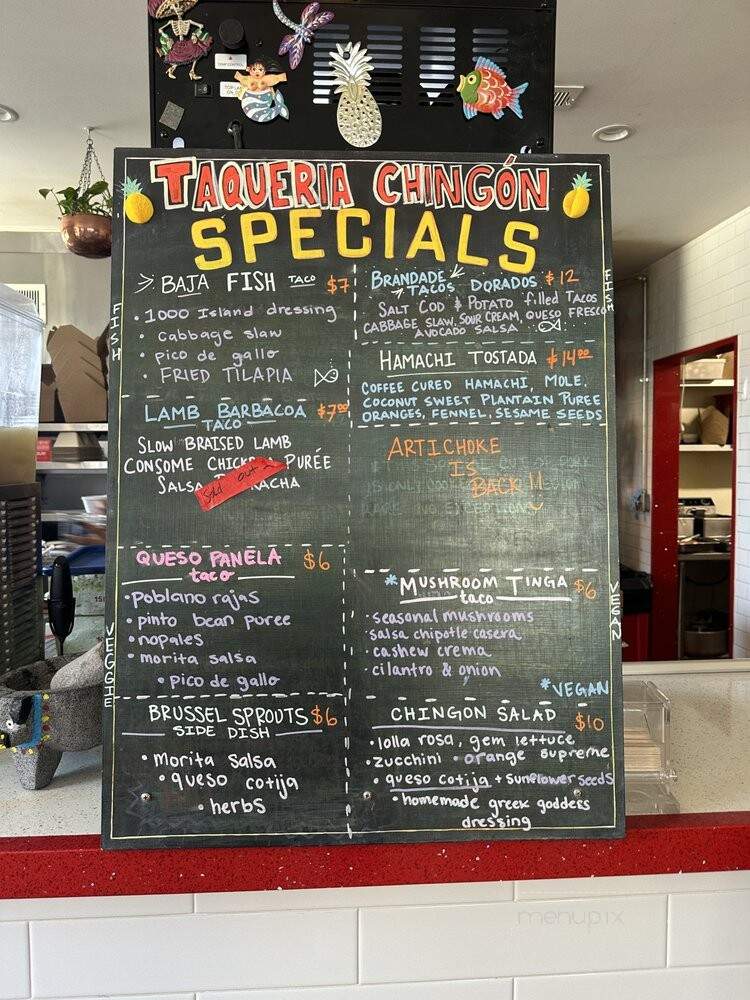 TAQUERIA CHINGÓN
SPECIALS
FISH
BAJA FISH TACO $7
• 1000 Island dressing
• cabbage slaw
• pico de gallo
• FRIED TILAPIA
BRANDADE
TACOS DORADOS $12
SALT COD & POTATO filled TACOS
CABBAGE SLAW, SOUR CREAM, QUESO FRESCO
AVOCADO SALSA
FISH
HAMACHI TOSTADA $14.00
COFFEE CURED HAMACHI, MOLE,
COCONUT SWEET PLANTAIN PUREE
ORANGES, FENNEL, SESAME SEEDS
LAMB BARBACOA $7.00
TACO
SLOW BRAISED LAMB
CONSOME PURÉE
SALSA
Sold out
ARTICHOKE
IS
BACK !!
QUESO PANELA $6
taco
• poblano rajas
• pinto bean puree
• nopales
• morita salsa
• pico de gallo
VEGGIE
*MUSHROOM TINGA $6
taco
• seasonal mushrooms
salsa chipotle casera
• cashew crema
• cilantro & onion
*VEGAN
VEGAN
BRUSSEL SPROUTS $6
SIDE DISH
• morita salsa
• queso cotija
• herbs
CHINGON SALAD $10
• lolla rosa, gem lettuce
• zucchini • orange supreme
• queso cotija + sunflower seeds
• homemade greek goddess
dressing
menupix